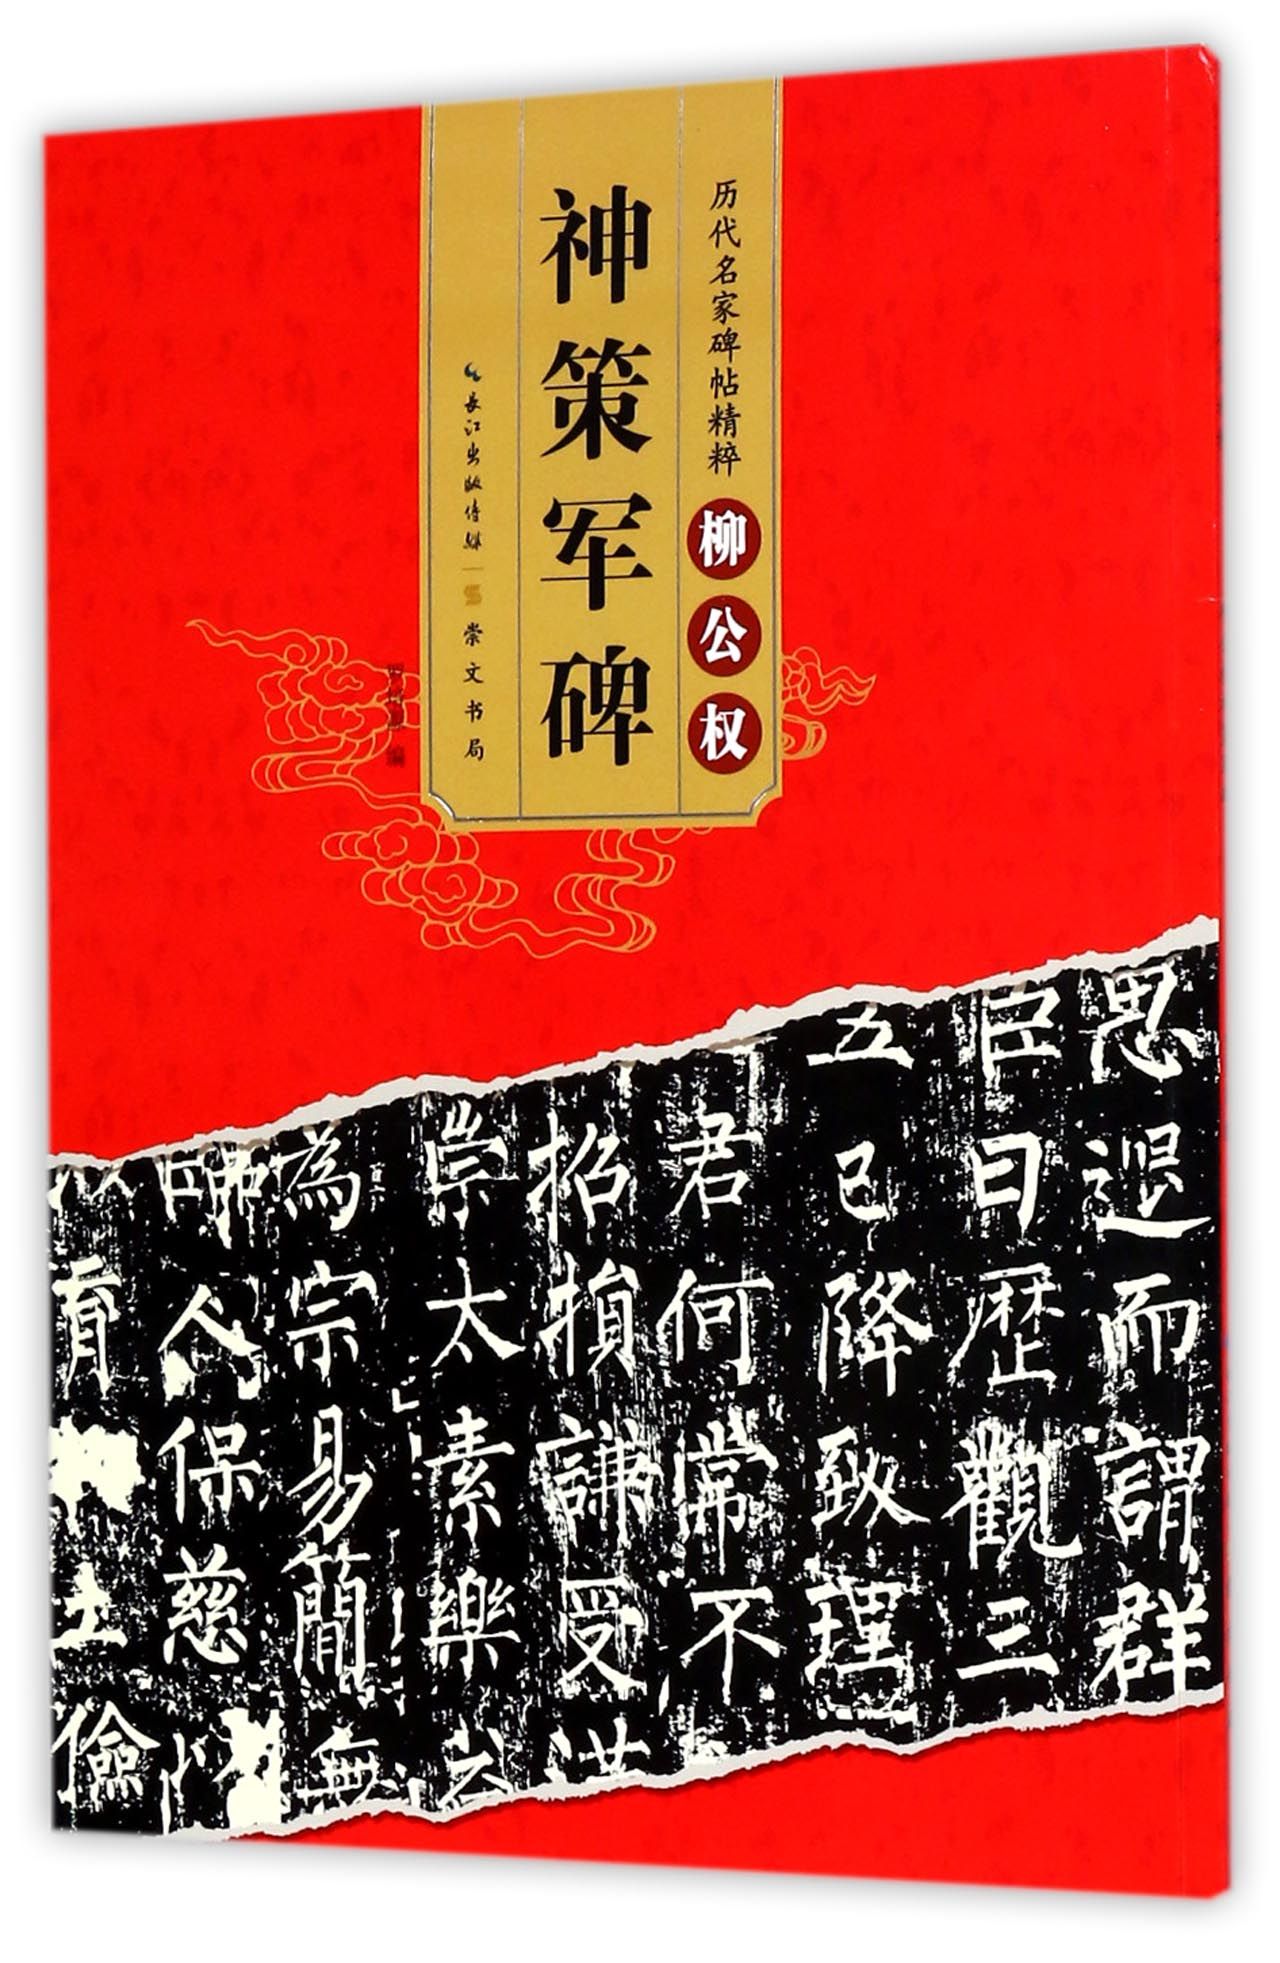 历代名家碑帖精粹
柳公权
神策军碑
长江出版传媒
崇文书局
编
思退而謂群
臣曰歴觀三
五已降致理
君何常不
招損謙受
崇太素樂
為宗易簡無
師人保慈
以有
土儉